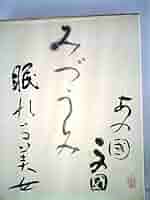 あの國
この國
みづうみ
眠れる美女